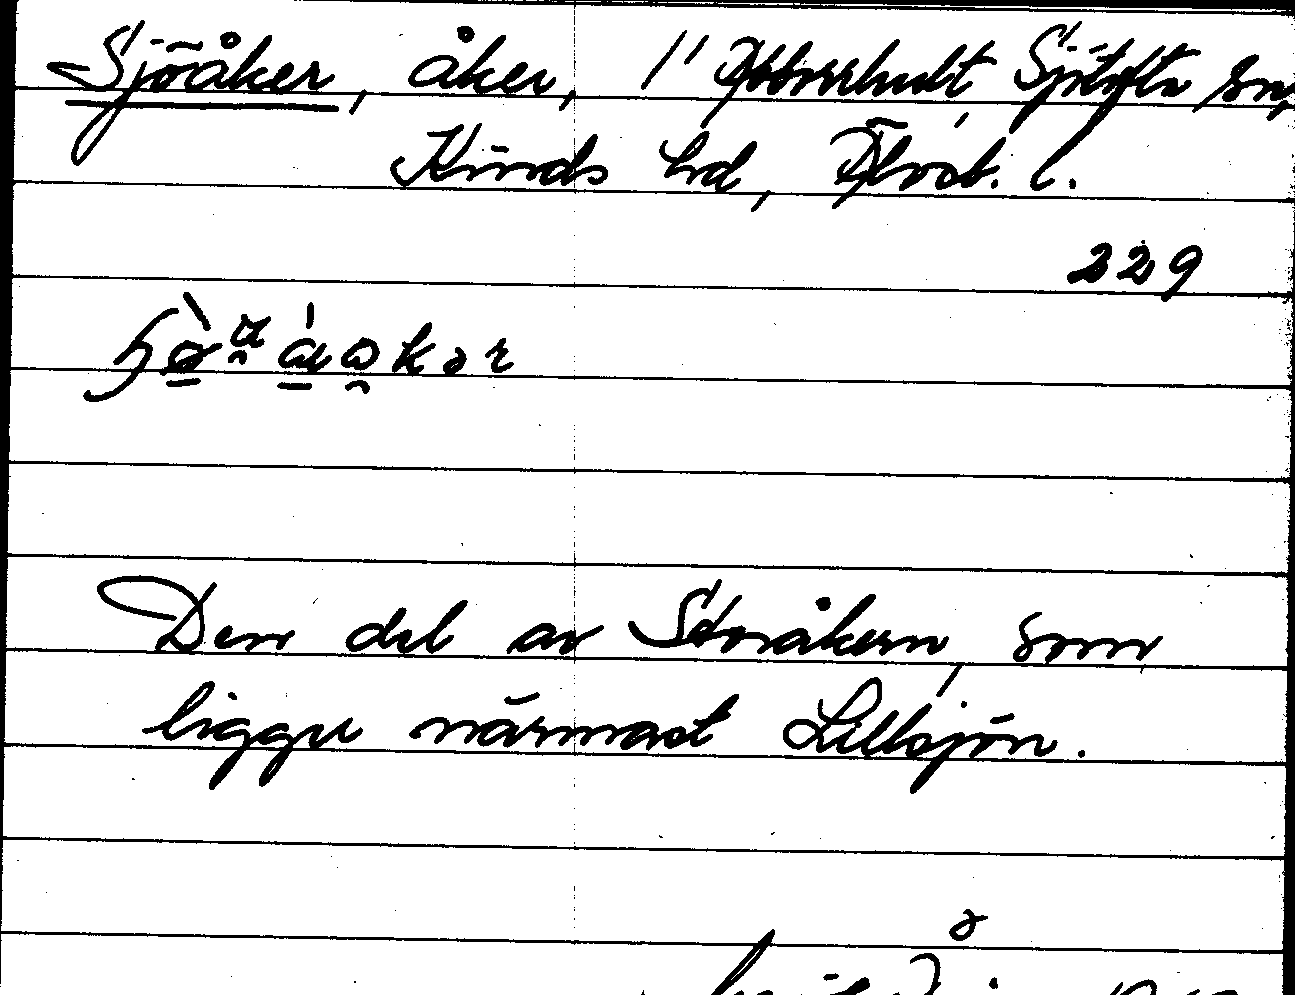 Sjöåker, åker, 1/1 Sjötofta sn,
Kinds hd, Älvsb. l.
229
Den del av Storåkern, som
ligger närmast Lillsjön.